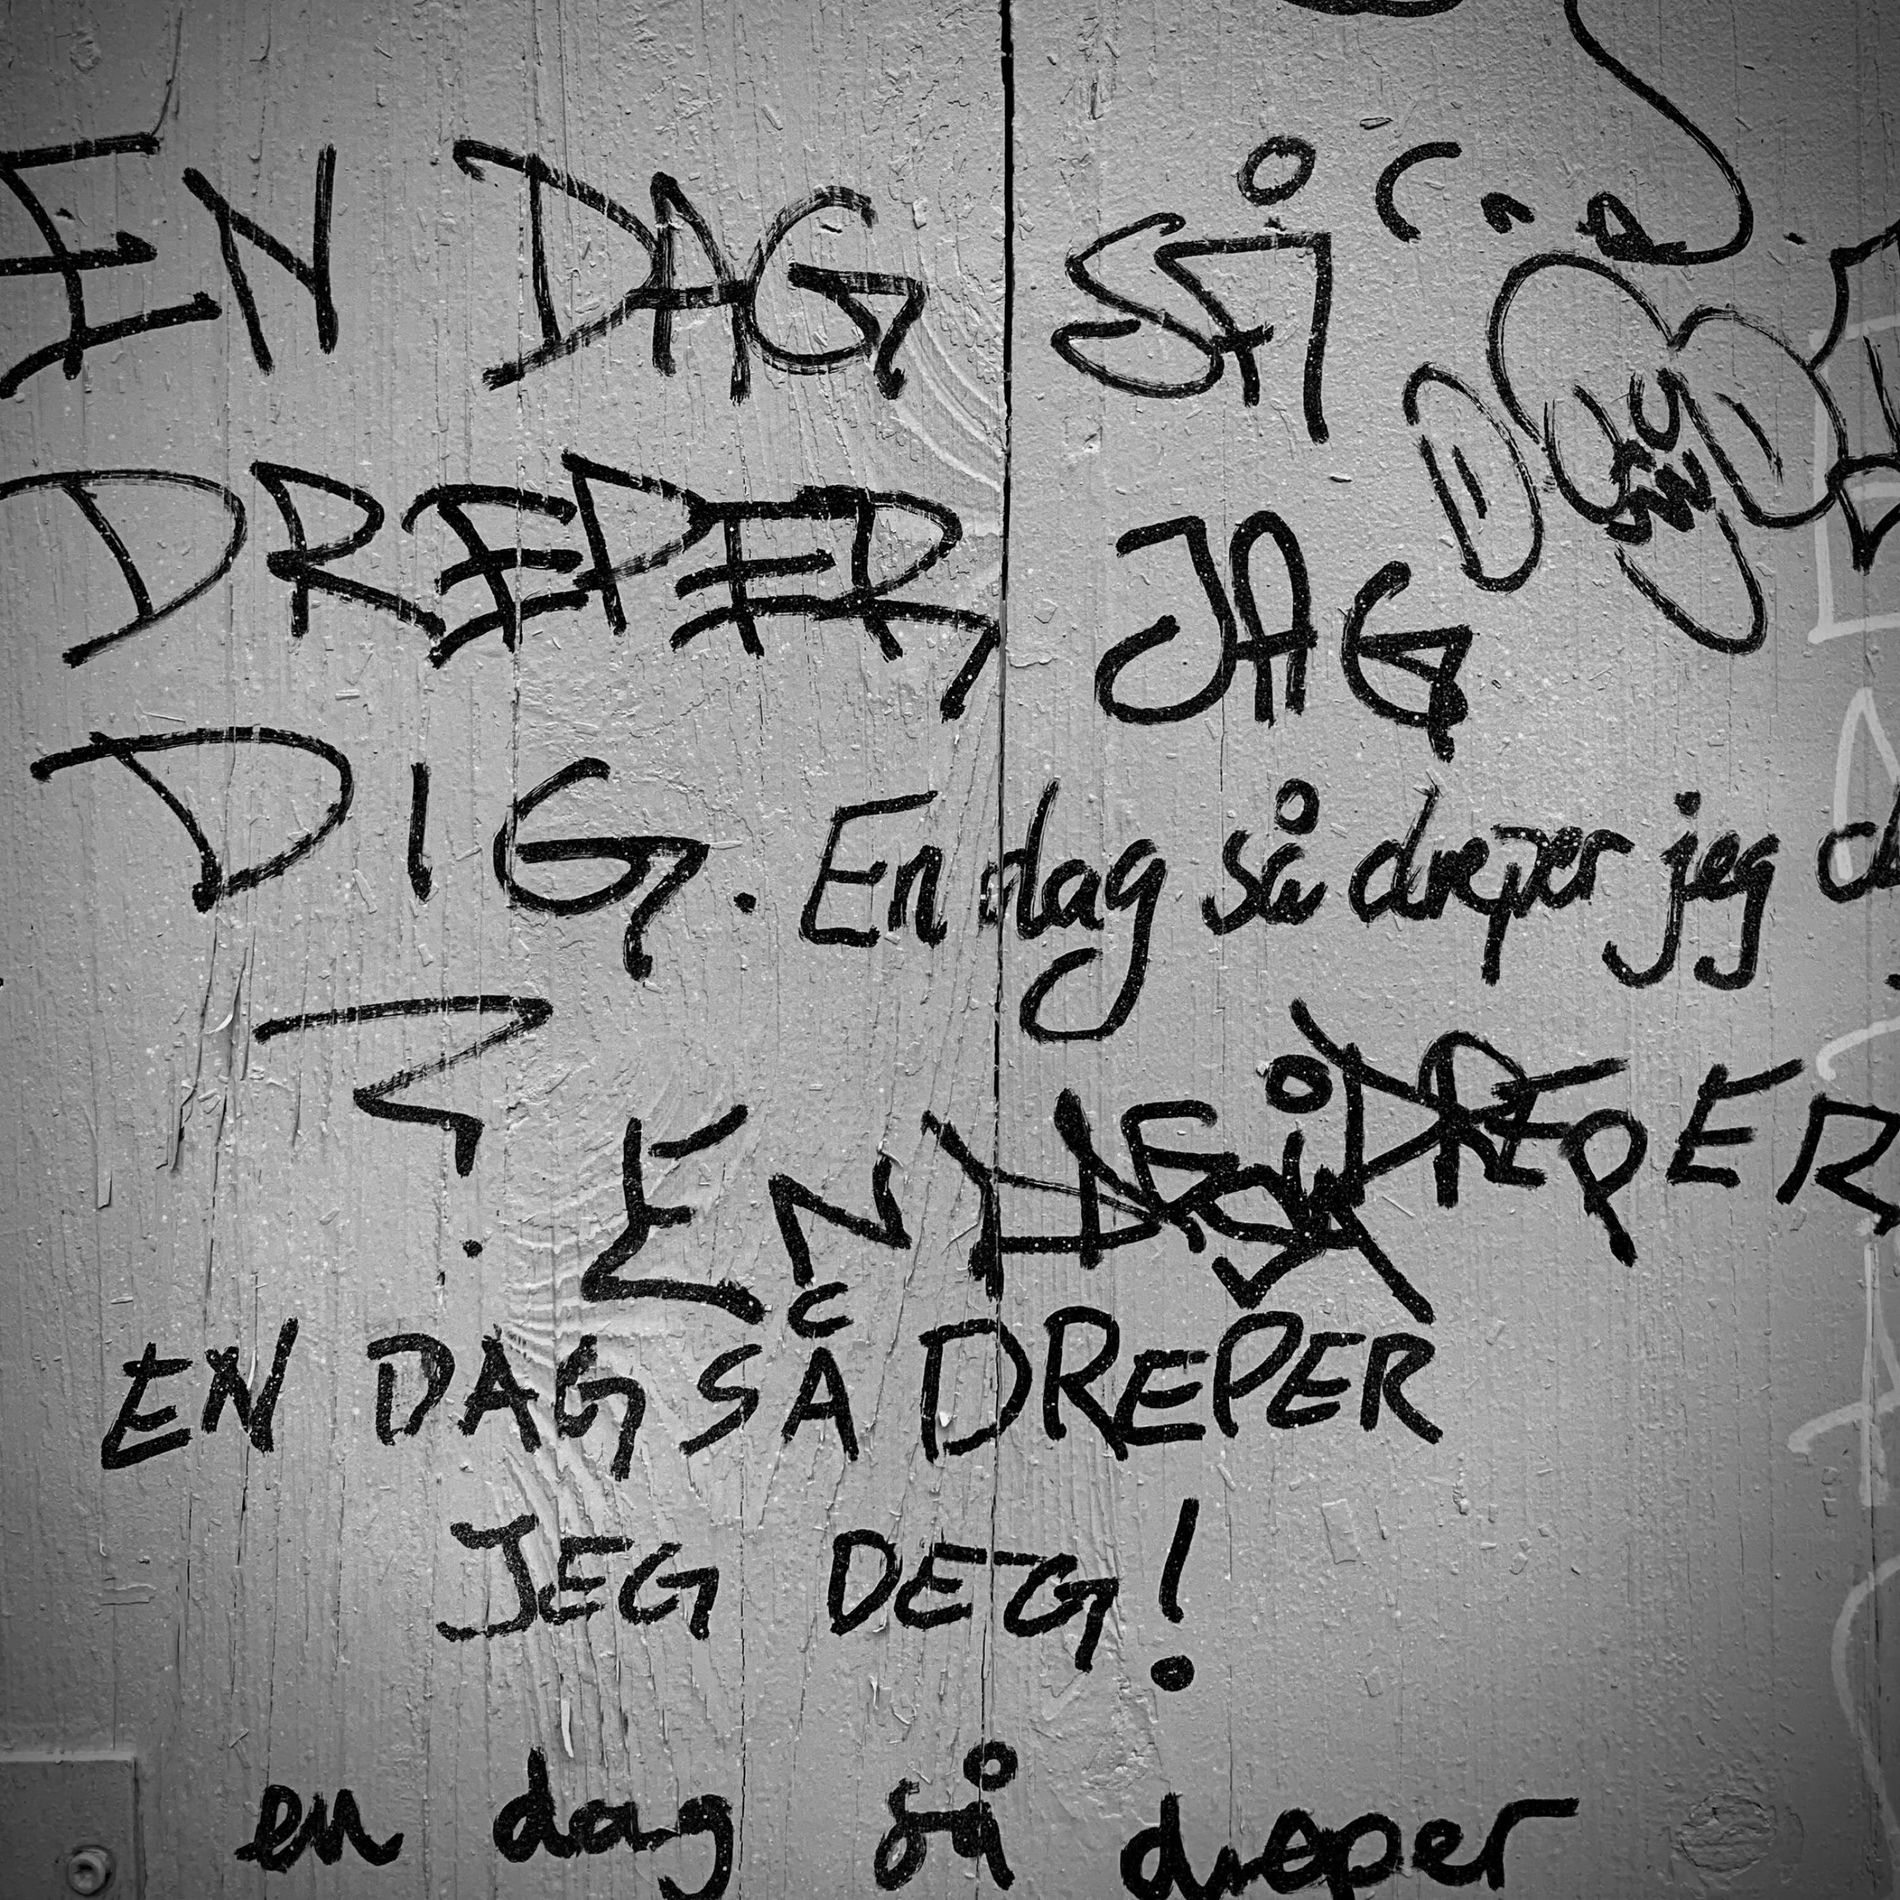 EN DAG SÅ
DREPER JAG
DIG. En dag så dreper jeg
?
EN DAG SÅ DREPER
EN DAG SÅ DREPER
JEG DEG!
en dag så dreper